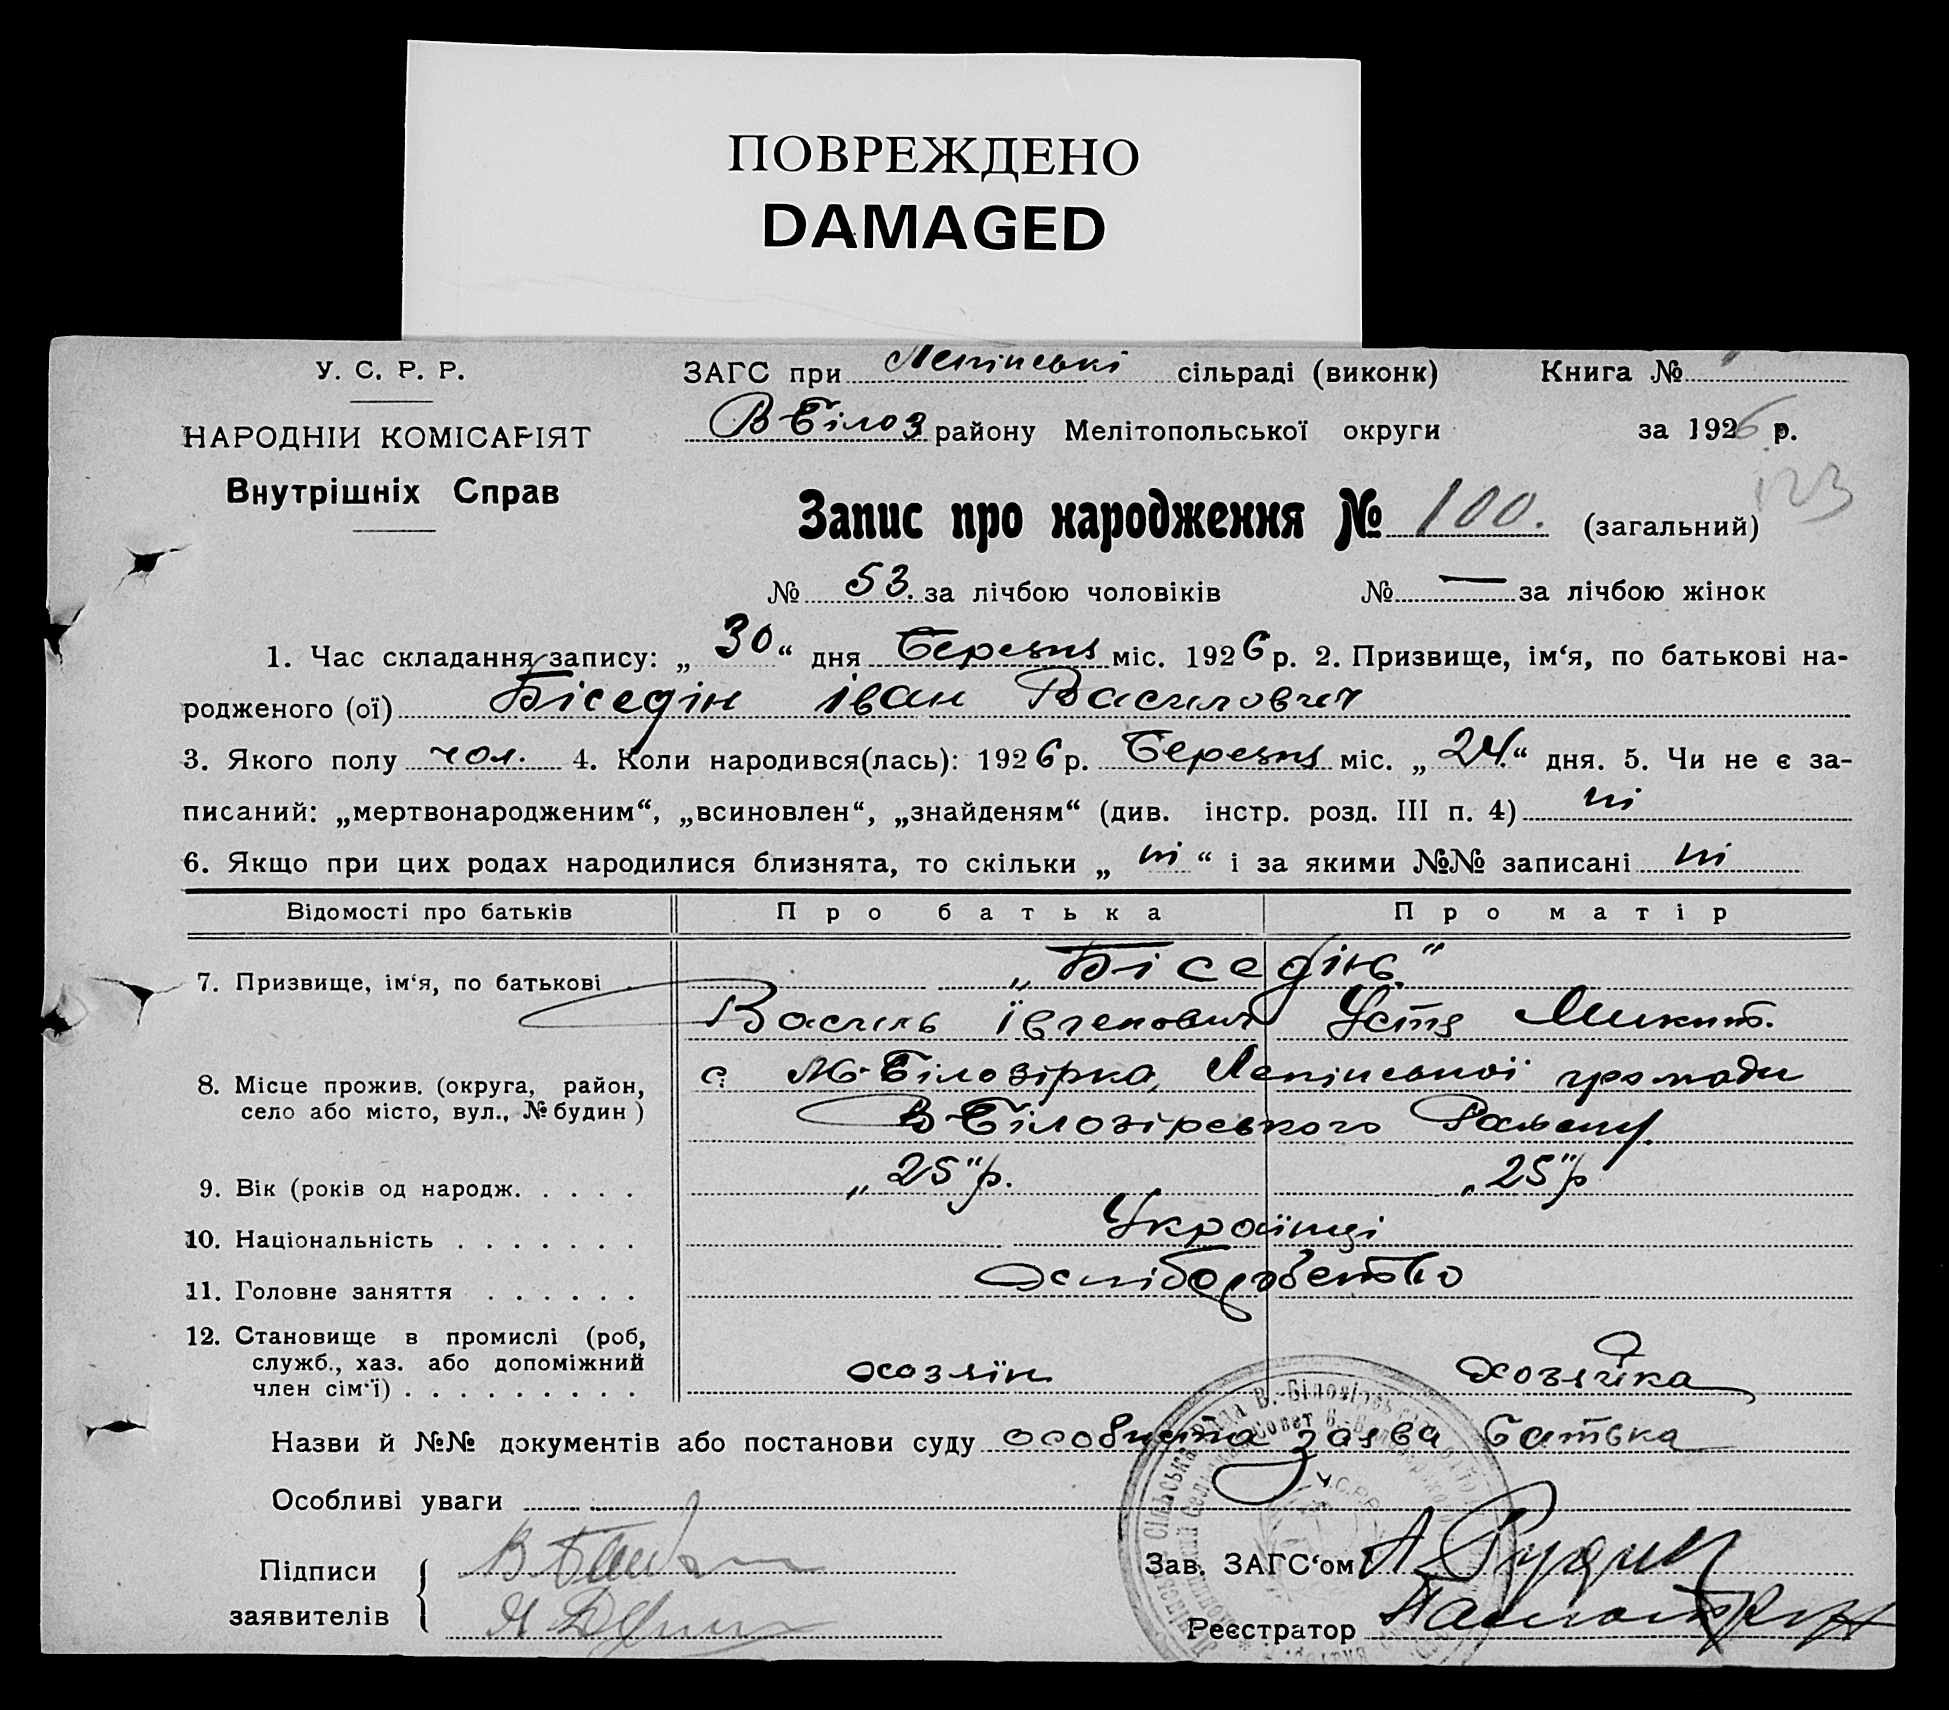 ПОВРЕЖДЕНО
DAMAGED
У. С. Р. Р.
ЗАГС при Ленінські сільраді (виконк) Книга №
НАРОДНІЙ КОМІСАРІЯТ
В Білоз району Мелітопольської округи за 1926 р.
Внутрішніх Справ
123
Запис про народження № 100. (загальний)
№ 53. за лічбою чоловіків № — за лічбою жінок
1. Час складання запису: „30“ дня Березня міс. 1926 р. 2. Призвище, ім‘я, по батькові на-
родженого (ої) Біседін Іван Василович
3. Якого полу чол. 4. Коли народився(лась): 1926 р. Березня міс. „24“ дня. 5. Чи не є за-
писаний: „мертвонародженим“, „всиновлен“, „знайденям“ (див. інстр. розд. III п. 4) ні
6. Якщо при цих родах народилися близнята, то скільки „ ні “ і за якими №№ записані ні
Відомості про батьків Про батька Про матір
7. Призвище, ім‘я, по батькові „Біседін“
Василь Івгенович Устя Микит.
8. Місце прожив. (округа, район,
село або місто, вул., № будин)
с. М-Білозірка, Ленінської громади
В-Білозірського Району.
9. Вік (років од народж. . . . . „25“р. „25“р
10. Національність . . . . . . . Українці
11. Головне заняття . . . . . . Хліборобство
12. Становище в промислі (роб,
служб., хаз. або допоміжний
член сім‘ї) . . . . . . . . . хозяїн хозяйка
Назви й №№ документів або постанови суду особиста заява батька
Особливі уваги
Підписи
заявителів
Зав. ЗАГС‘ом
Реєстратор